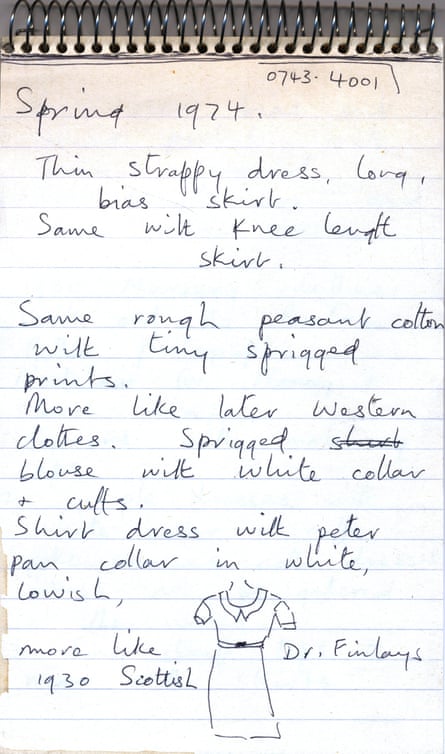 0743-4001
Spring 1974.
Thin strappy dress, long,
bias skirt.
Same with Knee length
skirt.
Same rough peasant cotton
with tiny sprigged
prints.
More like later Western
clothes. Sprigged shirt
blouse with white collar
+ cuffs.
Shirt dress with peter
pan collar in white,
lowish,
more like Dr. Finlays
1930 Scottish